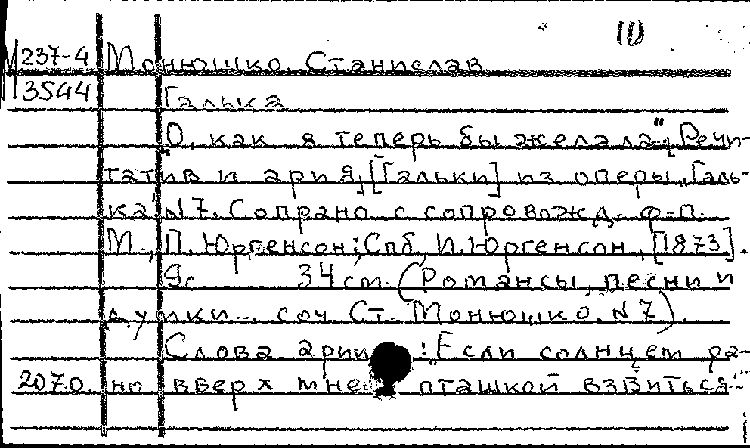 10
М 237-4 Монюшко, Станислав
3544 Галька
"О, как я теперь бы желала". Речи-
татив и ария [Гальки] из оперы "Галь-
ка" №7. Сопрано с сопровожд. ф-п.
М., П. Юргенсон; Спб, И. Юргенсон, [1873].
9с 34 см. (Романсы, песни и
думки... соч. Ст. Монюшко. №7).
Слова арии: "Если солнцем ра-
2070. но вверх мне пташкой взвиться"